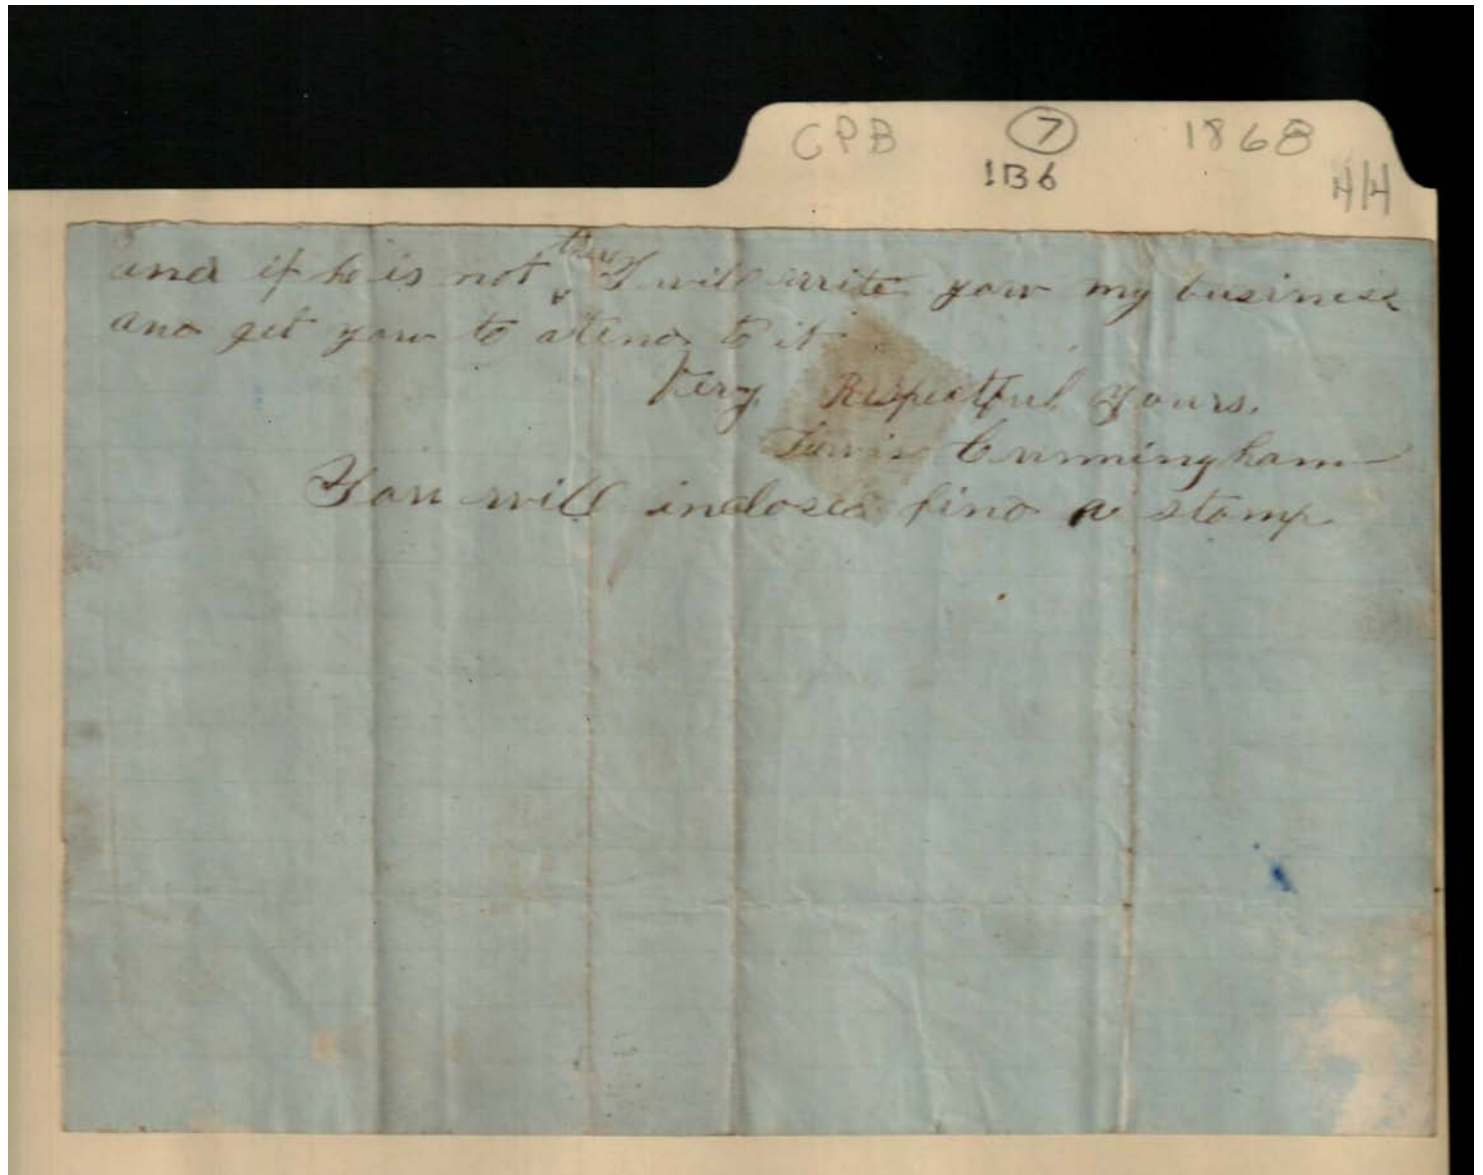 CPB 7 1868
1B6
4/4
and if he is not there I will write you my business
and get you to atend to it
Very Respectful Yours.
Cunningham
You will inclosed find a stamp